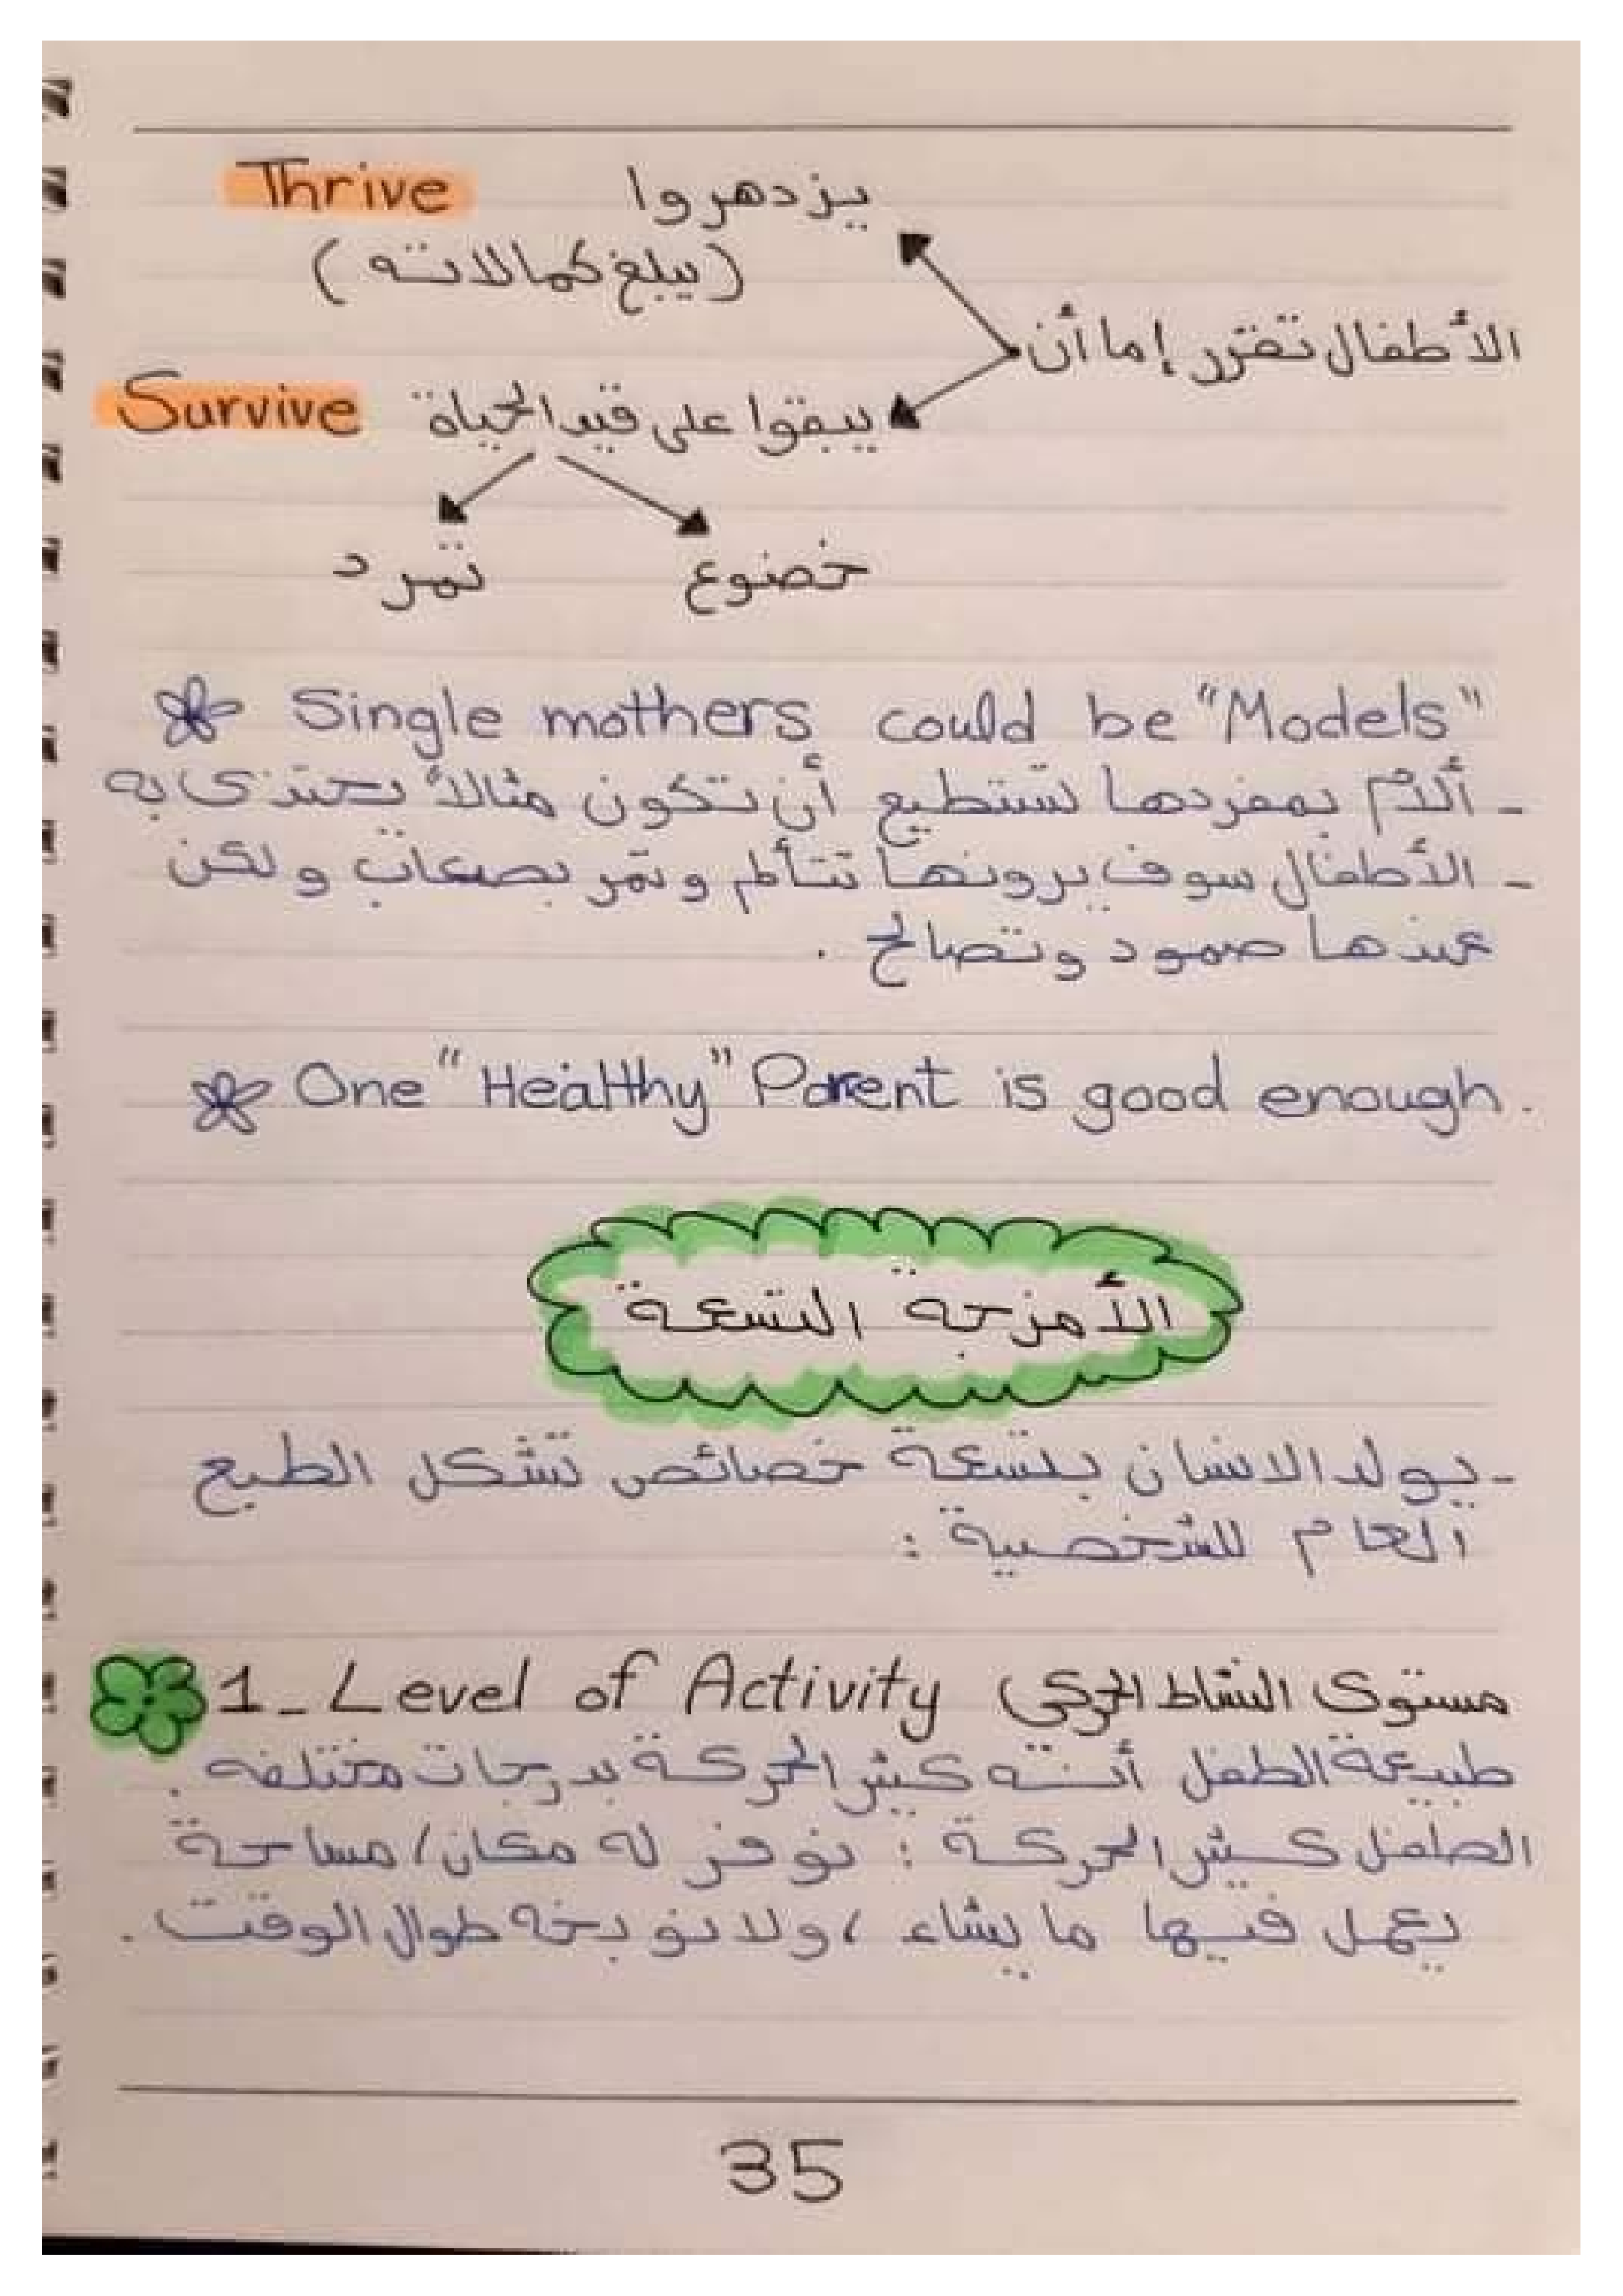 يزدهروا Thrive
(يبلغ كمالاته)
الأطفال تقرر إما أن
يبقوا على قيد الحياة Survive
خضوع تمرد
Single mothers could be "Models"
- ألأم بمفردها تستطيع أن تكون مثالاً يحتذى به
- الأطفال سوف يرونها تتألم وتمر بصعاب ولكن
عندها صمود وتصالح .
One "Healthy" Parent is good enough.
الأمزجة التسعة
- يولد الانسان بتسعة خصائص تشكل الطبع
العام للشخصية :
1_ Level of Activity مستوى النشاط الحركي
طبيعة الطفل أنه كثير الحركة بدرجات مختلفه .
الطفل كثير الحركة : نوفر له مكان/مساحة
يعمل فيها ما يشاء ، ولا نوبخه طوال الوقت .
35